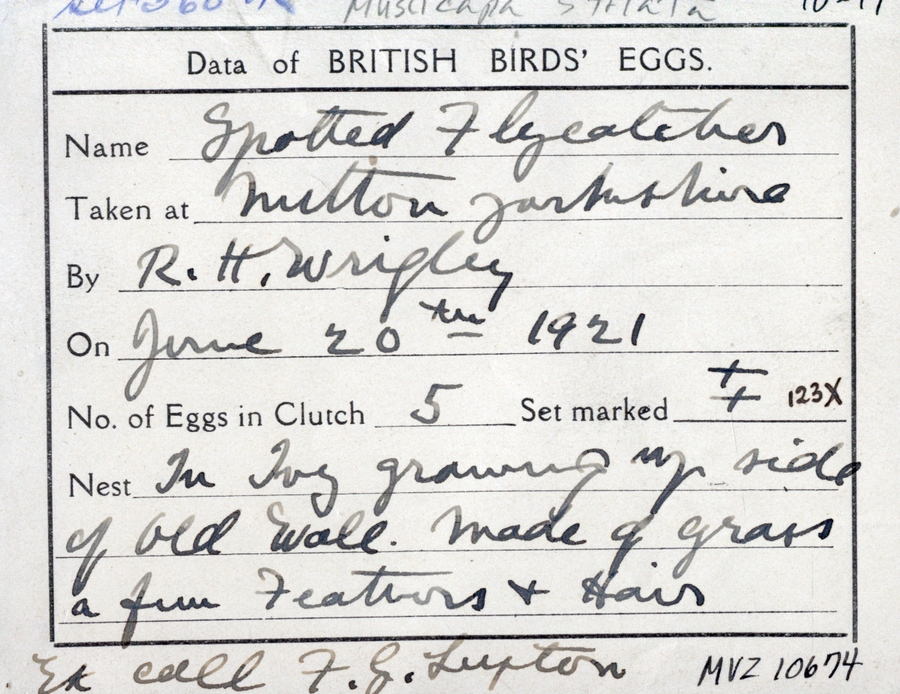 Muscicapa striata
Data of BRITISH BIRDS' EGGS.
Name Spotted Flycatcher
Taken at Mitton Yorkshire
By R. H. Wrigley
On June 20th 1921
No. of Eggs in Clutch 5 Set marked ‡ 123X
Nest In Ivy growing up side
of Old Wall. Made of grass
a few Feathers & Hair
Ex Coll F. G. Lupton MVZ 10674